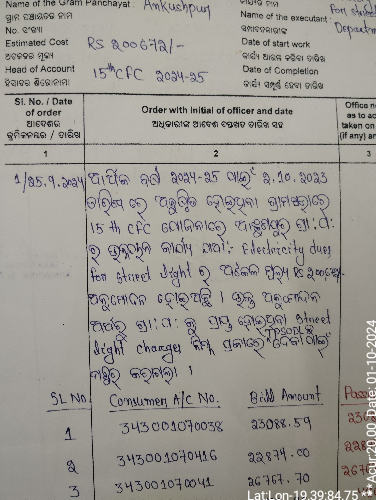 Name of the Gram Panchayat : Ankushpur
ଗ୍ରାମ ପଞ୍ଚାୟତର ନାମ
No. ସଂଖ୍ୟା
Estimated Cost RS 200672/-
ଅଟକଳର ମୂଲ୍ୟ
Head of Account 15th CFC 2024-25
ହିସାବର ଶିରୋନାମା
Name of the executant :
ସମ୍ପାଦନକାରୀଙ୍କ
Date of start work
କାର୍ଯ୍ୟ ଆରମ୍ଭ କରିବା ତାରିଖ
Date of Completion
କାର୍ଯ୍ୟ ସମ୍ପୂର୍ଣ୍ଣ ହେବା ତାରିଖ
Sl. No. / Date of order
ଆଦେଶର
କ୍ରମିକନମ୍ବର / ତାରିଖ
Order with initial of officer and date
ଅଧିକାରୀଙ୍କ ଆଦେଶ ଦସ୍ତଖତ ତାରିଖ ସହ
Office n
as to ac
taken on
(if any) an
1 2 3
1/25.9.2024 ଆର୍ଥିକ ବର୍ଷ 2024-25 ପାଇଁ 2.10.2023
ତାରିଖ ରେ ଅନୁଷ୍ଠିତ ହୋଇଥିବା ଗ୍ରାମସଭାରେ
15 th CFC ଯୋଜନାରେ ଅଙ୍କୁଶପୁର ଗ୍ରା.ପ.
ର ଉନ୍ନୟନ କାର୍ଯ୍ୟ ଯଥା:- Electricity dues
for street light ର ଅଟକଳ ମୂଲ୍ୟ RS 200672/-
ଅନୁମୋଦନ ହୋଇଅଛି । ଉକ୍ତ ଅନୁମୋଦନ
ଗ୍ରା.ପ. କୁ ହୋଇଥିବା street
TPSODL କୁ
light charges ନିମ୍ନ ପ୍ରକାରେ ଦେବା ପାଇଁ
କରାଗଲା ।
SL No Consumer A/C No. Bill Amount
1 343001070038 23088.59
2 343001070416 22874.00
3 343001070041 26767.70
Lat:Lon-19.39:84.75
Acur:20.00 Date: 01-10-2024